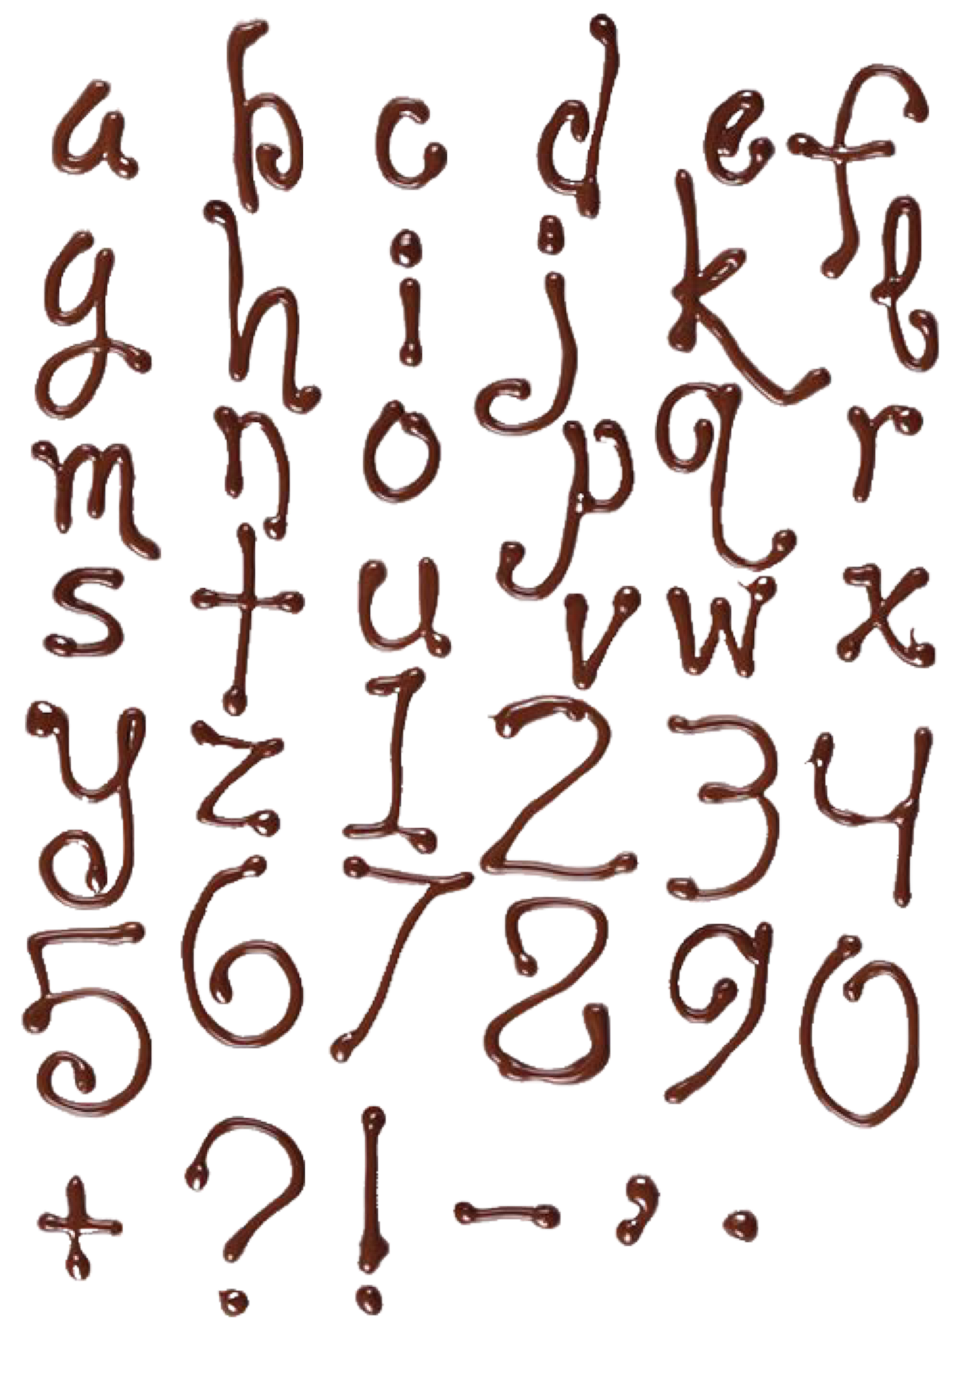 a b c d e f
g h i j k l
m n o p q r
s t u v w x
y z 1 2 3 4
5 6 7 8 9 0
+ ? ! - , .